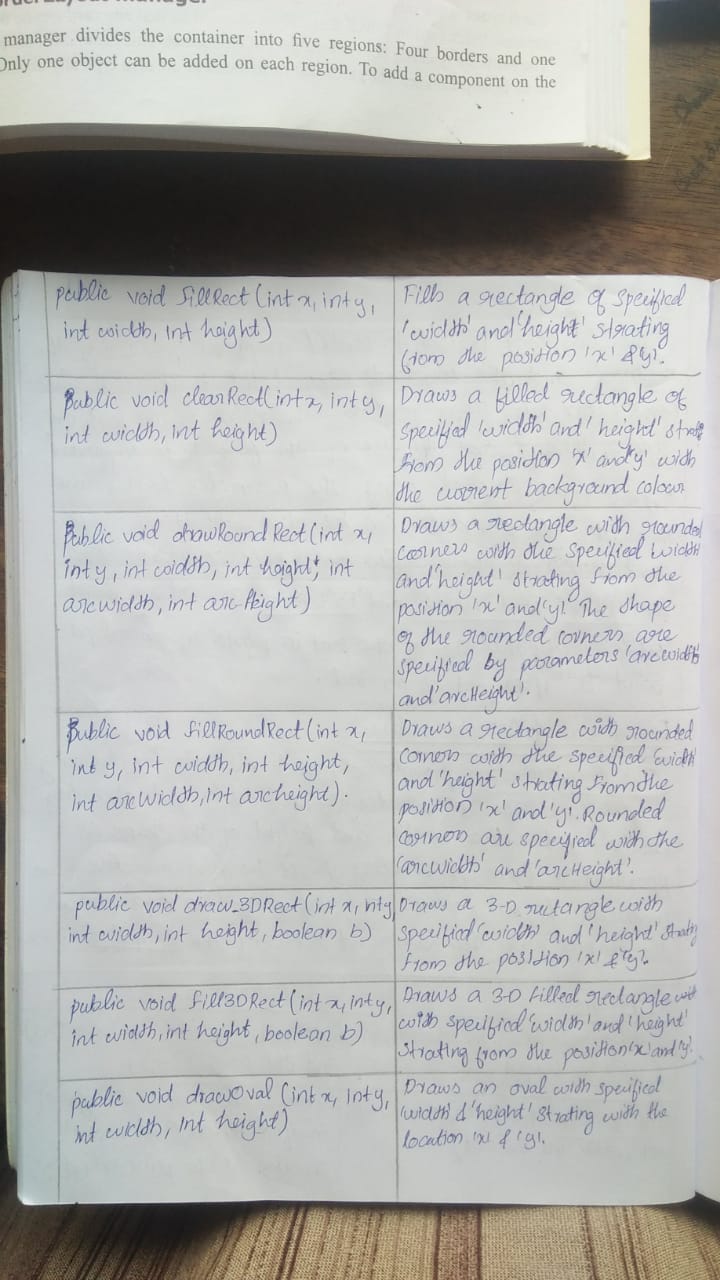 manager divides the container into five regions: Four borders and one
Only one object can be added on each region. To add a component on the
public void fillRect (int x, int y,
int width, int height)
Fills a rectangle of specified
'width' and 'height' strating
from the position 'x' & 'y'.
Public void clearRect(int x, int y,
int width, int height)
Draws a filled rectangle of
specified 'width' and 'height' strati
from the position 'x' and 'y' with
the current background colour
Public void drawRound Rect (int x,
int y, int width, int height, int
arcwidth, int arc height)
Draws a rectangle with rounded
corners with the specified width
and 'height' strating from the
position 'x' and 'y' The shape
of the rounded corners are
specified by parameters 'arcwidth
and 'arcHeight'.
Public void fillRoundRect (int x,
int y, int width, int height,
int arcWidth, int archeight).
Draws a rectangle with rounded
corners with the specified 'width
and 'height' strating from the
position 'x' and 'y'. Rounded
corners are specified with the
'arcwidth' and 'arcHeight'.
public void draw_3DRect (int x, inty
int width, int height, boolean b)
Draws a 3-D rectangle with
specified 'width' and 'height' strating
from the position 'x' & 'y'.
public void fill3DRect (int x, int y,
int width, int height, boolean b)
Draws a 3-D filled rectangle with
with specified 'width' and 'height'
strating from the position 'x' and 'y'.
public void drawOval (int x, int y,
int width, int height)
Draws an oval with specified
'width' & 'height' strating with the
location 'x' & 'y'.